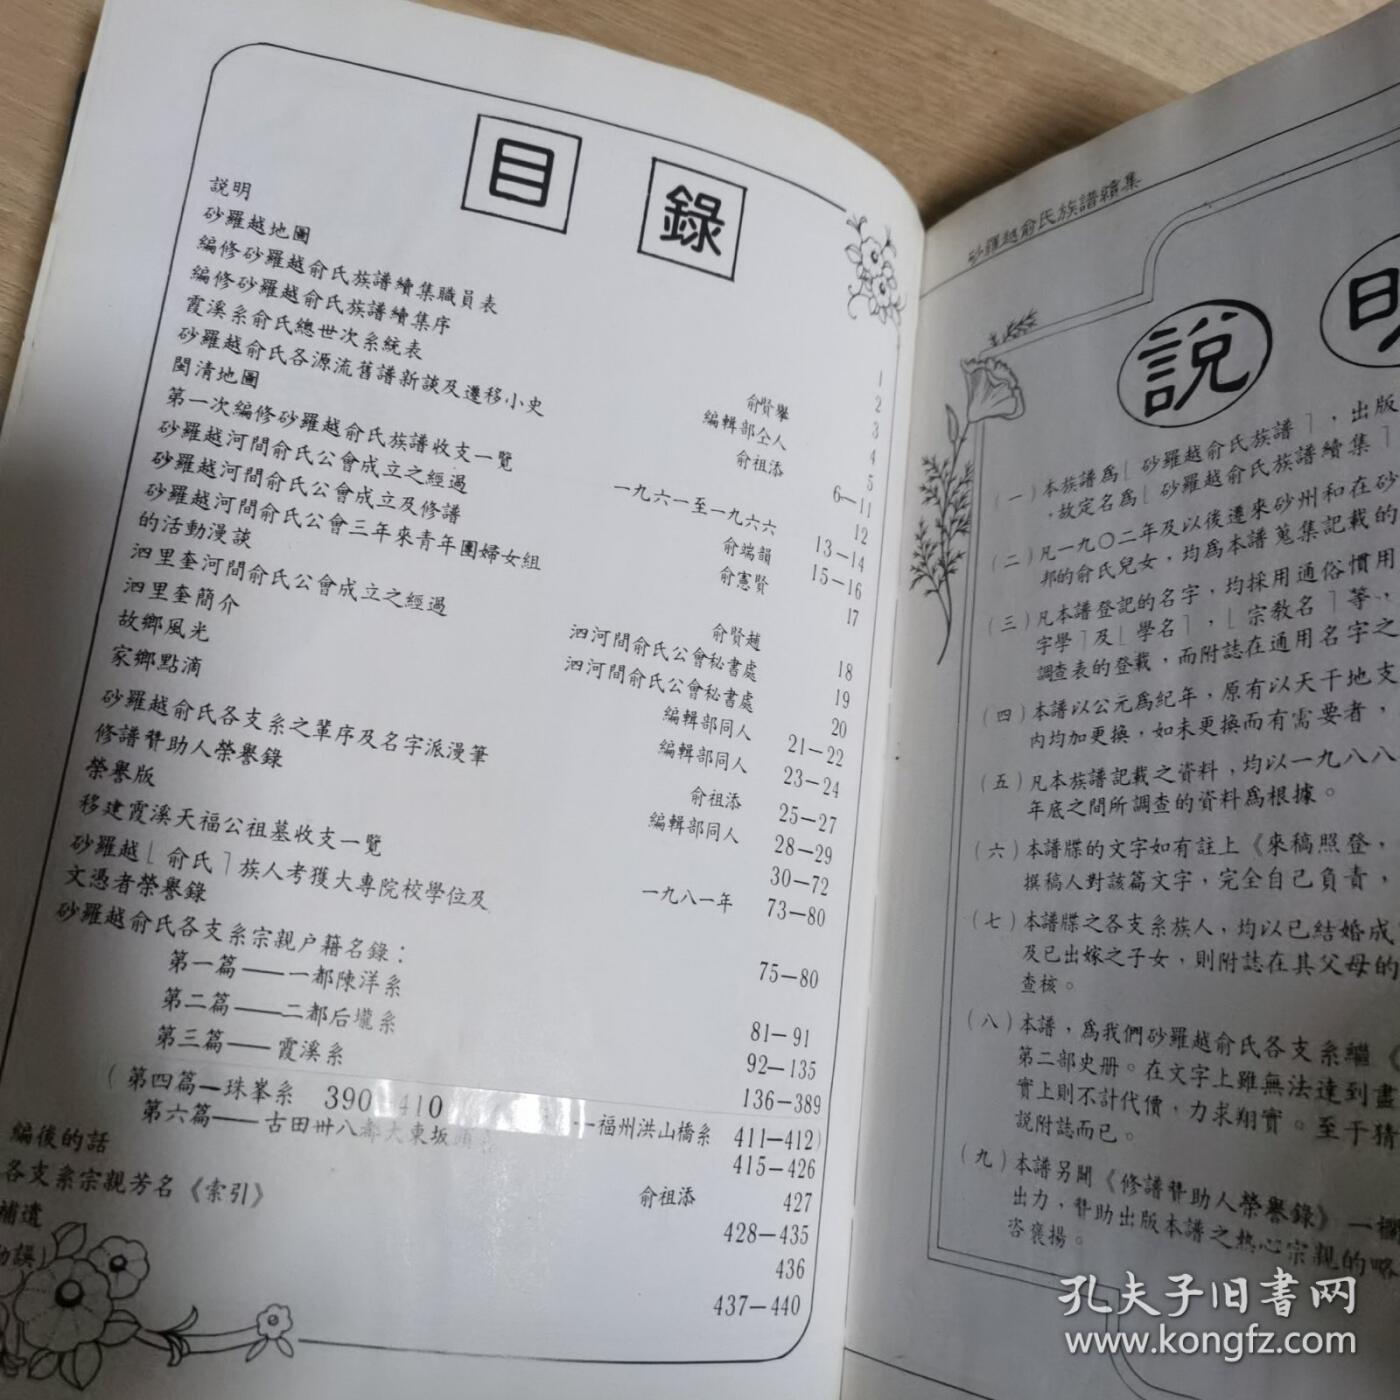 目錄
説明 1
砂羅越地圖 2
編修砂羅越俞氏族譜續集職員表 3
編修砂羅越俞氏族譜續集序 俞賢舉 4
霞溪系俞氏總世次系統表 編輯部仝人 5
砂羅越俞氏各源流舊譜新談及遷移小史 俞祖添 6—11
閩清地圖 12
第一次編修砂羅越俞氏族譜收支一覽 一九六一至一九六六 13—14
砂羅越河間俞氏公會成立之經過 俞端韻 15—16
砂羅越河間俞氏公會成立及修譜 俞憲賢 17
砂羅越河間俞氏公會三年來青年團婦女組
的活動漫談 俞賢趙 18
泗里奎河間俞氏公會成立之經過 泗河間俞氏公會秘書處 19
泗里奎簡介 泗河間俞氏公會秘書處 20
故鄉風光 編輯部同人 21—22
家鄉點滴 編輯部同人 23—24
砂羅越俞氏各支系之輩序及名字派漫筆 俞祖添 25—27
修譜贊助人榮譽錄 編輯部同人 28—29
榮譽版 30—72
移建霞溪天福公祖墓收支一覽 一九八一年 73—80
砂羅越「俞氏」族人考獲大專院校學位及
文憑者榮譽錄 75—80
砂羅越俞氏各支系宗親户籍名錄：
第一篇——一都陳洋系 81—91
第二篇——二都后壠系 92—135
第三篇——霞溪系 136—389
(第四篇—珠峯系 390 410 —福州洪山橋系 411—412)
第六篇——古田卅八都大東坂 415—426
編後的話 俞祖添 427
各支系宗親芳名《索引》 428—435
補遺 436
誤」 437—440
砂羅越俞氏族譜續集
説
(一)本族譜爲「砂羅越俞氏族譜」，出版
，故定名爲「砂羅越俞氏族譜續集」
(二)凡一九〇二年及以後遷來砂州和在砂
邦的俞氏兒女，均爲本譜蒐集記載的
(三)凡本譜登記的名字，均採用通俗慣用
字學」及「學名」，「宗教名」等，
調查表的登載，而附誌在通用名字之
(四)本譜以公元爲紀年，原有以天干地支
内均加更換，如未更換而有需要者，
(五)凡本族譜記載之資料，均以一九八八
年底之間所調查的資料爲根據。
(六)本譜牒的文字如有註上《來稿照登，
撰稿人對該篇文字，完全自己負責，
(七)本譜牒之各支系族人，均以已結婚成
及已出嫁之子女，則附誌在其父母的
查核。
(八)本譜，爲我們砂羅越俞氏各支系繼《
第二部史册。在文字上雖無法達到盡
實上則不計代價，力求翔實。至于猜
説附誌而已。
(九)本譜另闢《修譜贊助人榮譽錄》一欄
出力，贊助出版本譜之热心宗親的略
咨褒揚。
孔夫子旧书网
www.kongfz.com